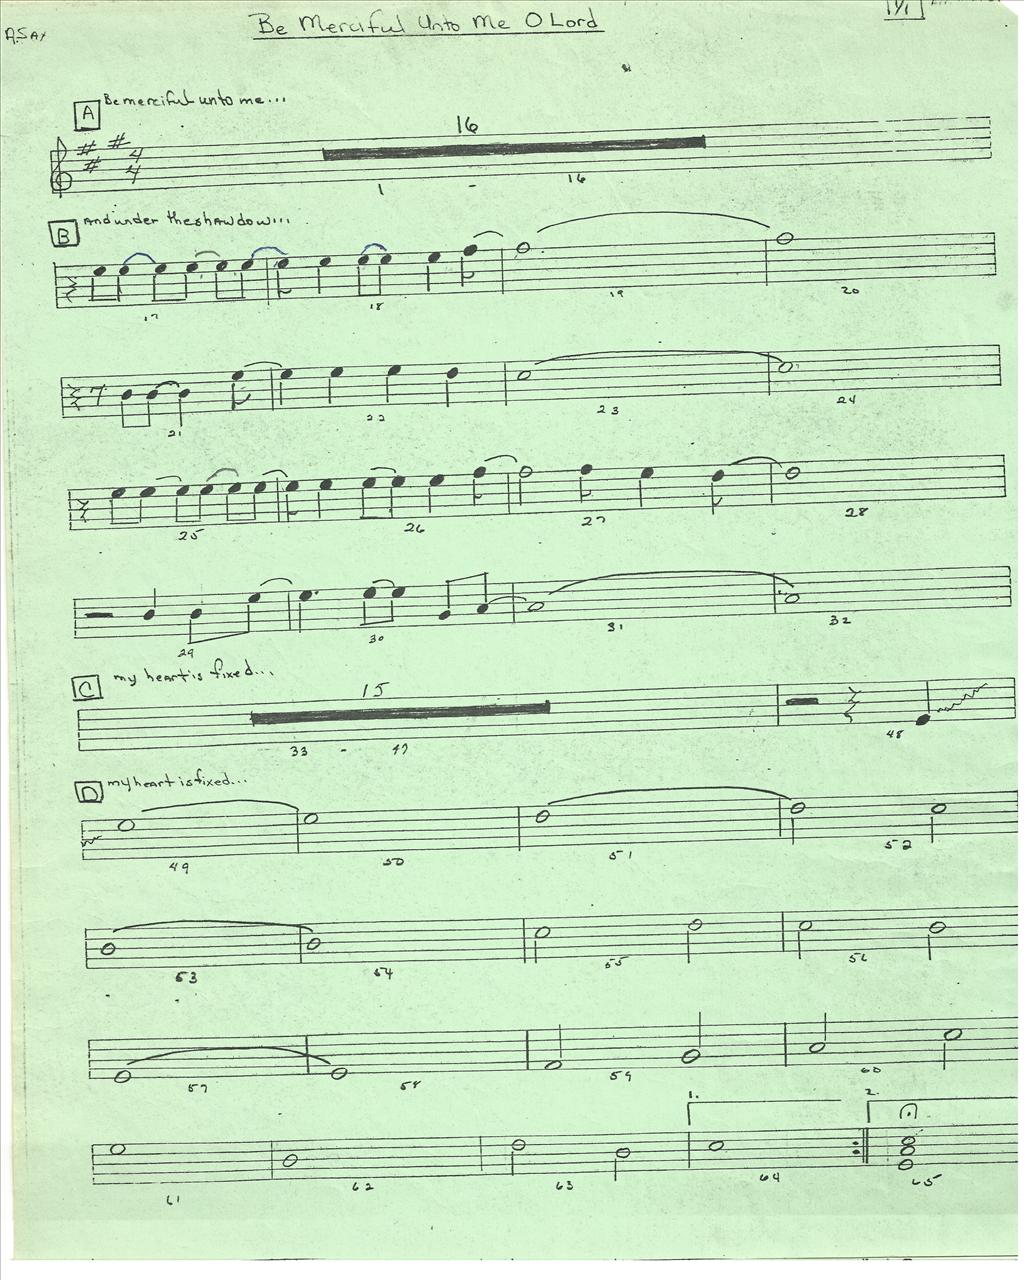 Be Merciful Unto Me O Lord
A Be merciful unto me...
16
4
4
1 - 16
B And under the shawdow...
17 18 19 20
21 22 23 24
25 26 27 28
29 30 31 32
C my heart is fixed...
15
33 - 47 48
D my heart is fixed...
49 50 51 52
53 54 55 56
57 58 59 60
1. 2.
61 62 63 64 65